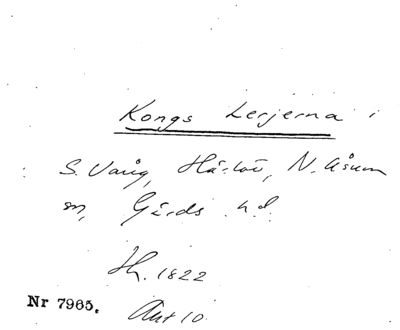 Kongs Lerjerna i
S. Vång, Härlöv, N. Åsum
m, Gärds hd.
Hh. 1822
Nr 7965. Akt 10.